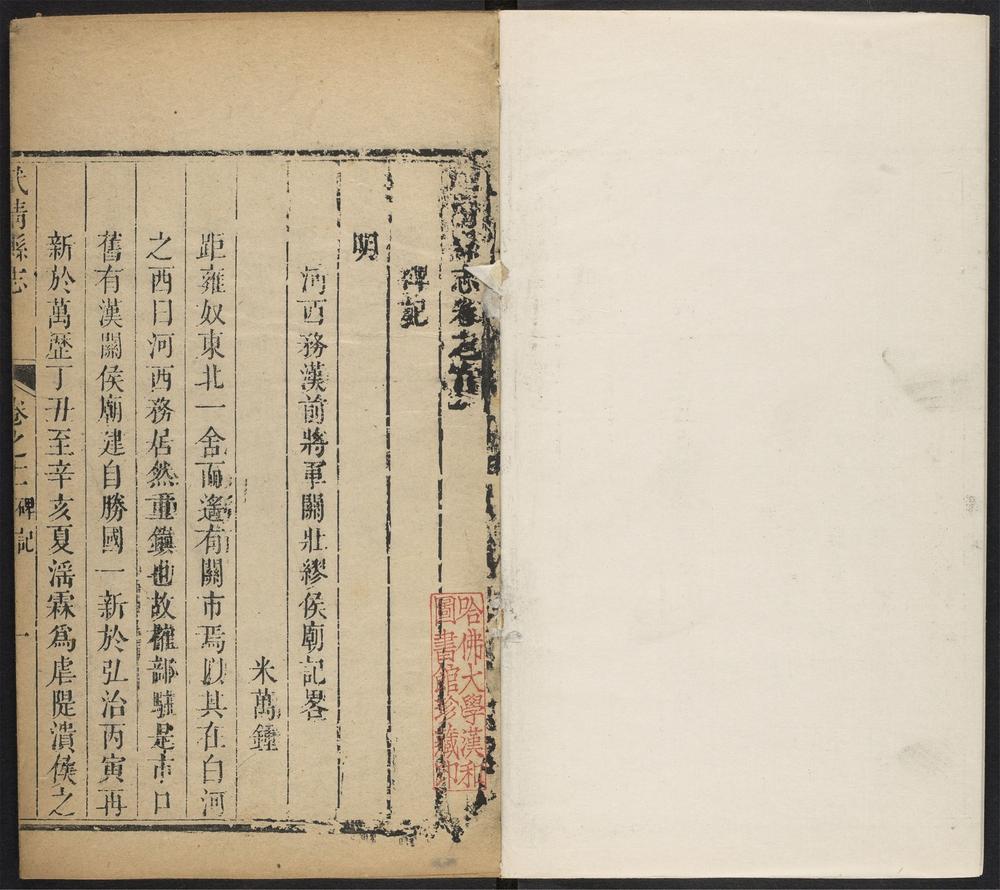 縣志卷之
碑記
明
河西務漢前將軍關壯繆侯廟記畧
米萬鍾
距雍奴東北一舍而遙有關市焉以其在白河
之西曰河西務居然重鎮也故榷部駐是市口
舊有漢關侯廟建自勝國一新於弘治丙寅再
新於萬歷丁丑至辛亥夏滛霖為虐隄潰侯之
武清縣志
卷之十二碑記
一
哈佛大學漢和
圖書館珍藏印